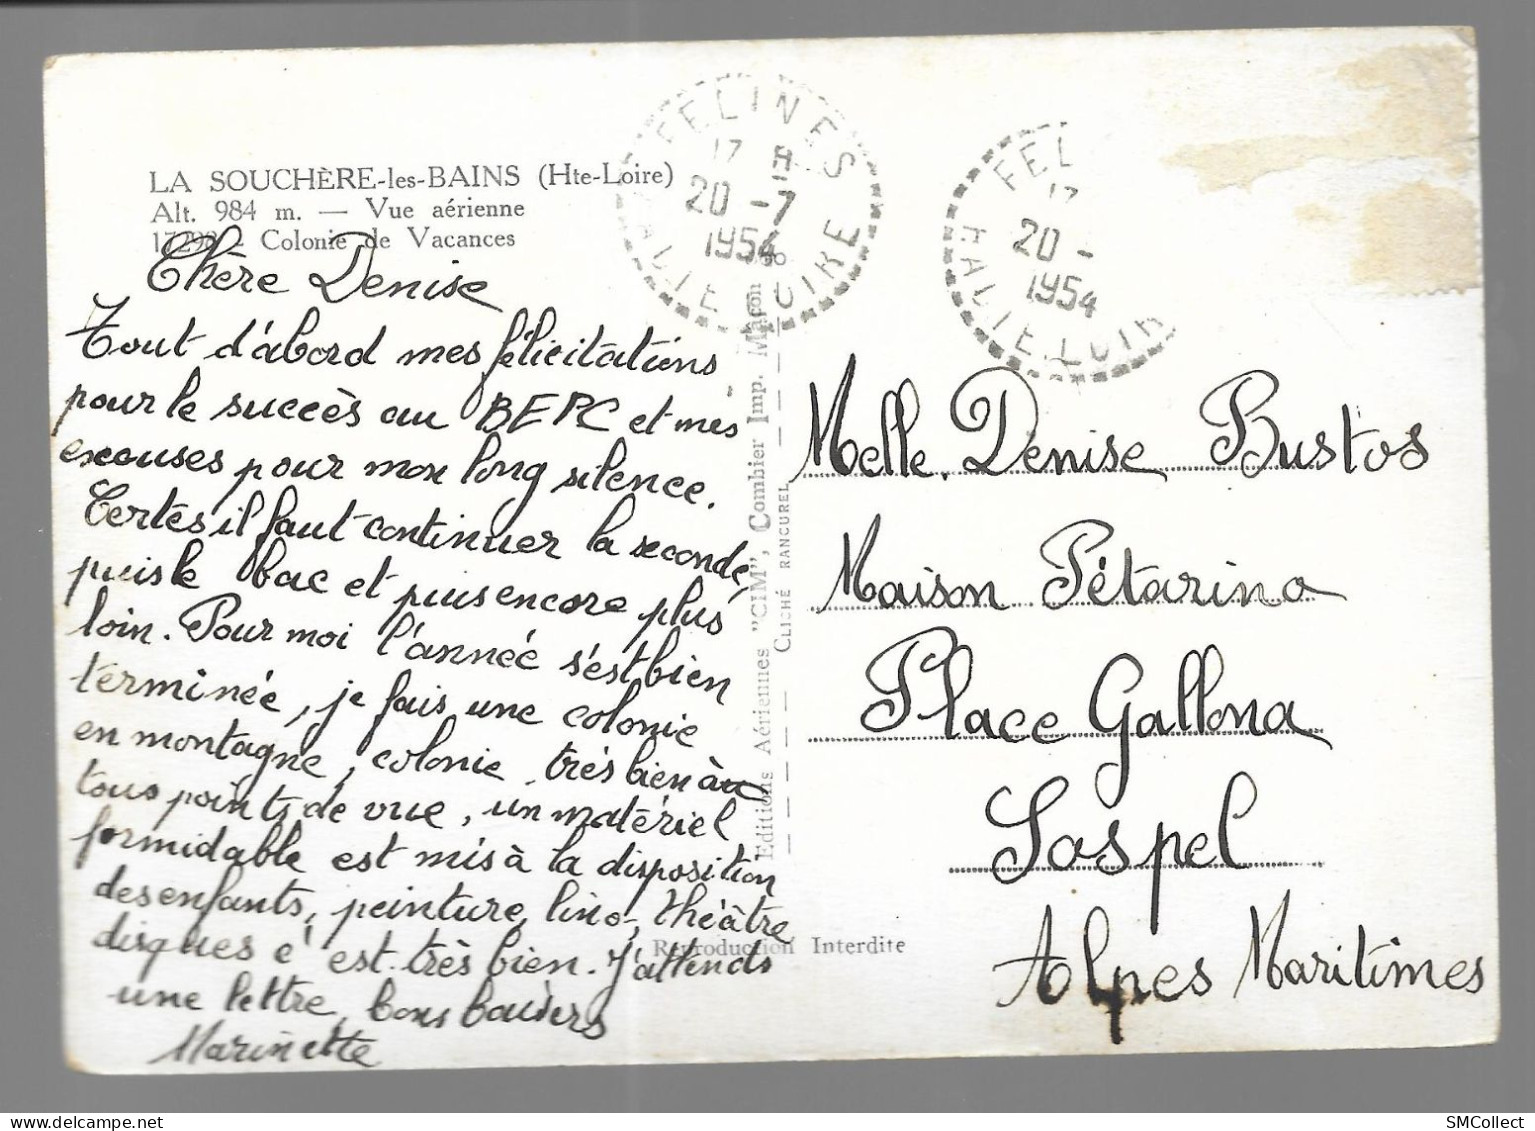 LA SOUCHÈRE-les-BAINS (Hte-Loire)
Alt. 984 m. — Vue aérienne
17298 - Colonie de Vacances
FELINES
17 H
20 -7
1954
HAUTE LOIRE
FEL
17
20 -
1954
HAUTE LOIR
Chère Denise
Tout d'abord mes félicitations
pour le succès au BEPC et mes
excuses pour mon long silence.
Certes il faut continuer la seconde,
puis le bac et puis encore plus
loin. Pour moi l'année s'est bien
terminée, je fais une colonie
en montagne, colonie très bien à
tous points de vue, un matériel
formidable est mis à la disposition
des enfants, peinture, lino, théâtre
disques c'est très bien. J'attends
une lettre, bons baisers
Marinette
Editions Aériennes "CIM", Combier Imp. Macon
CLICHÉ RANCUREL
Reproduction Interdite
Melle Denise Bustos
Maison Pétarino
Place Gallona
Sospel
Alpes Maritimes
SMCollect